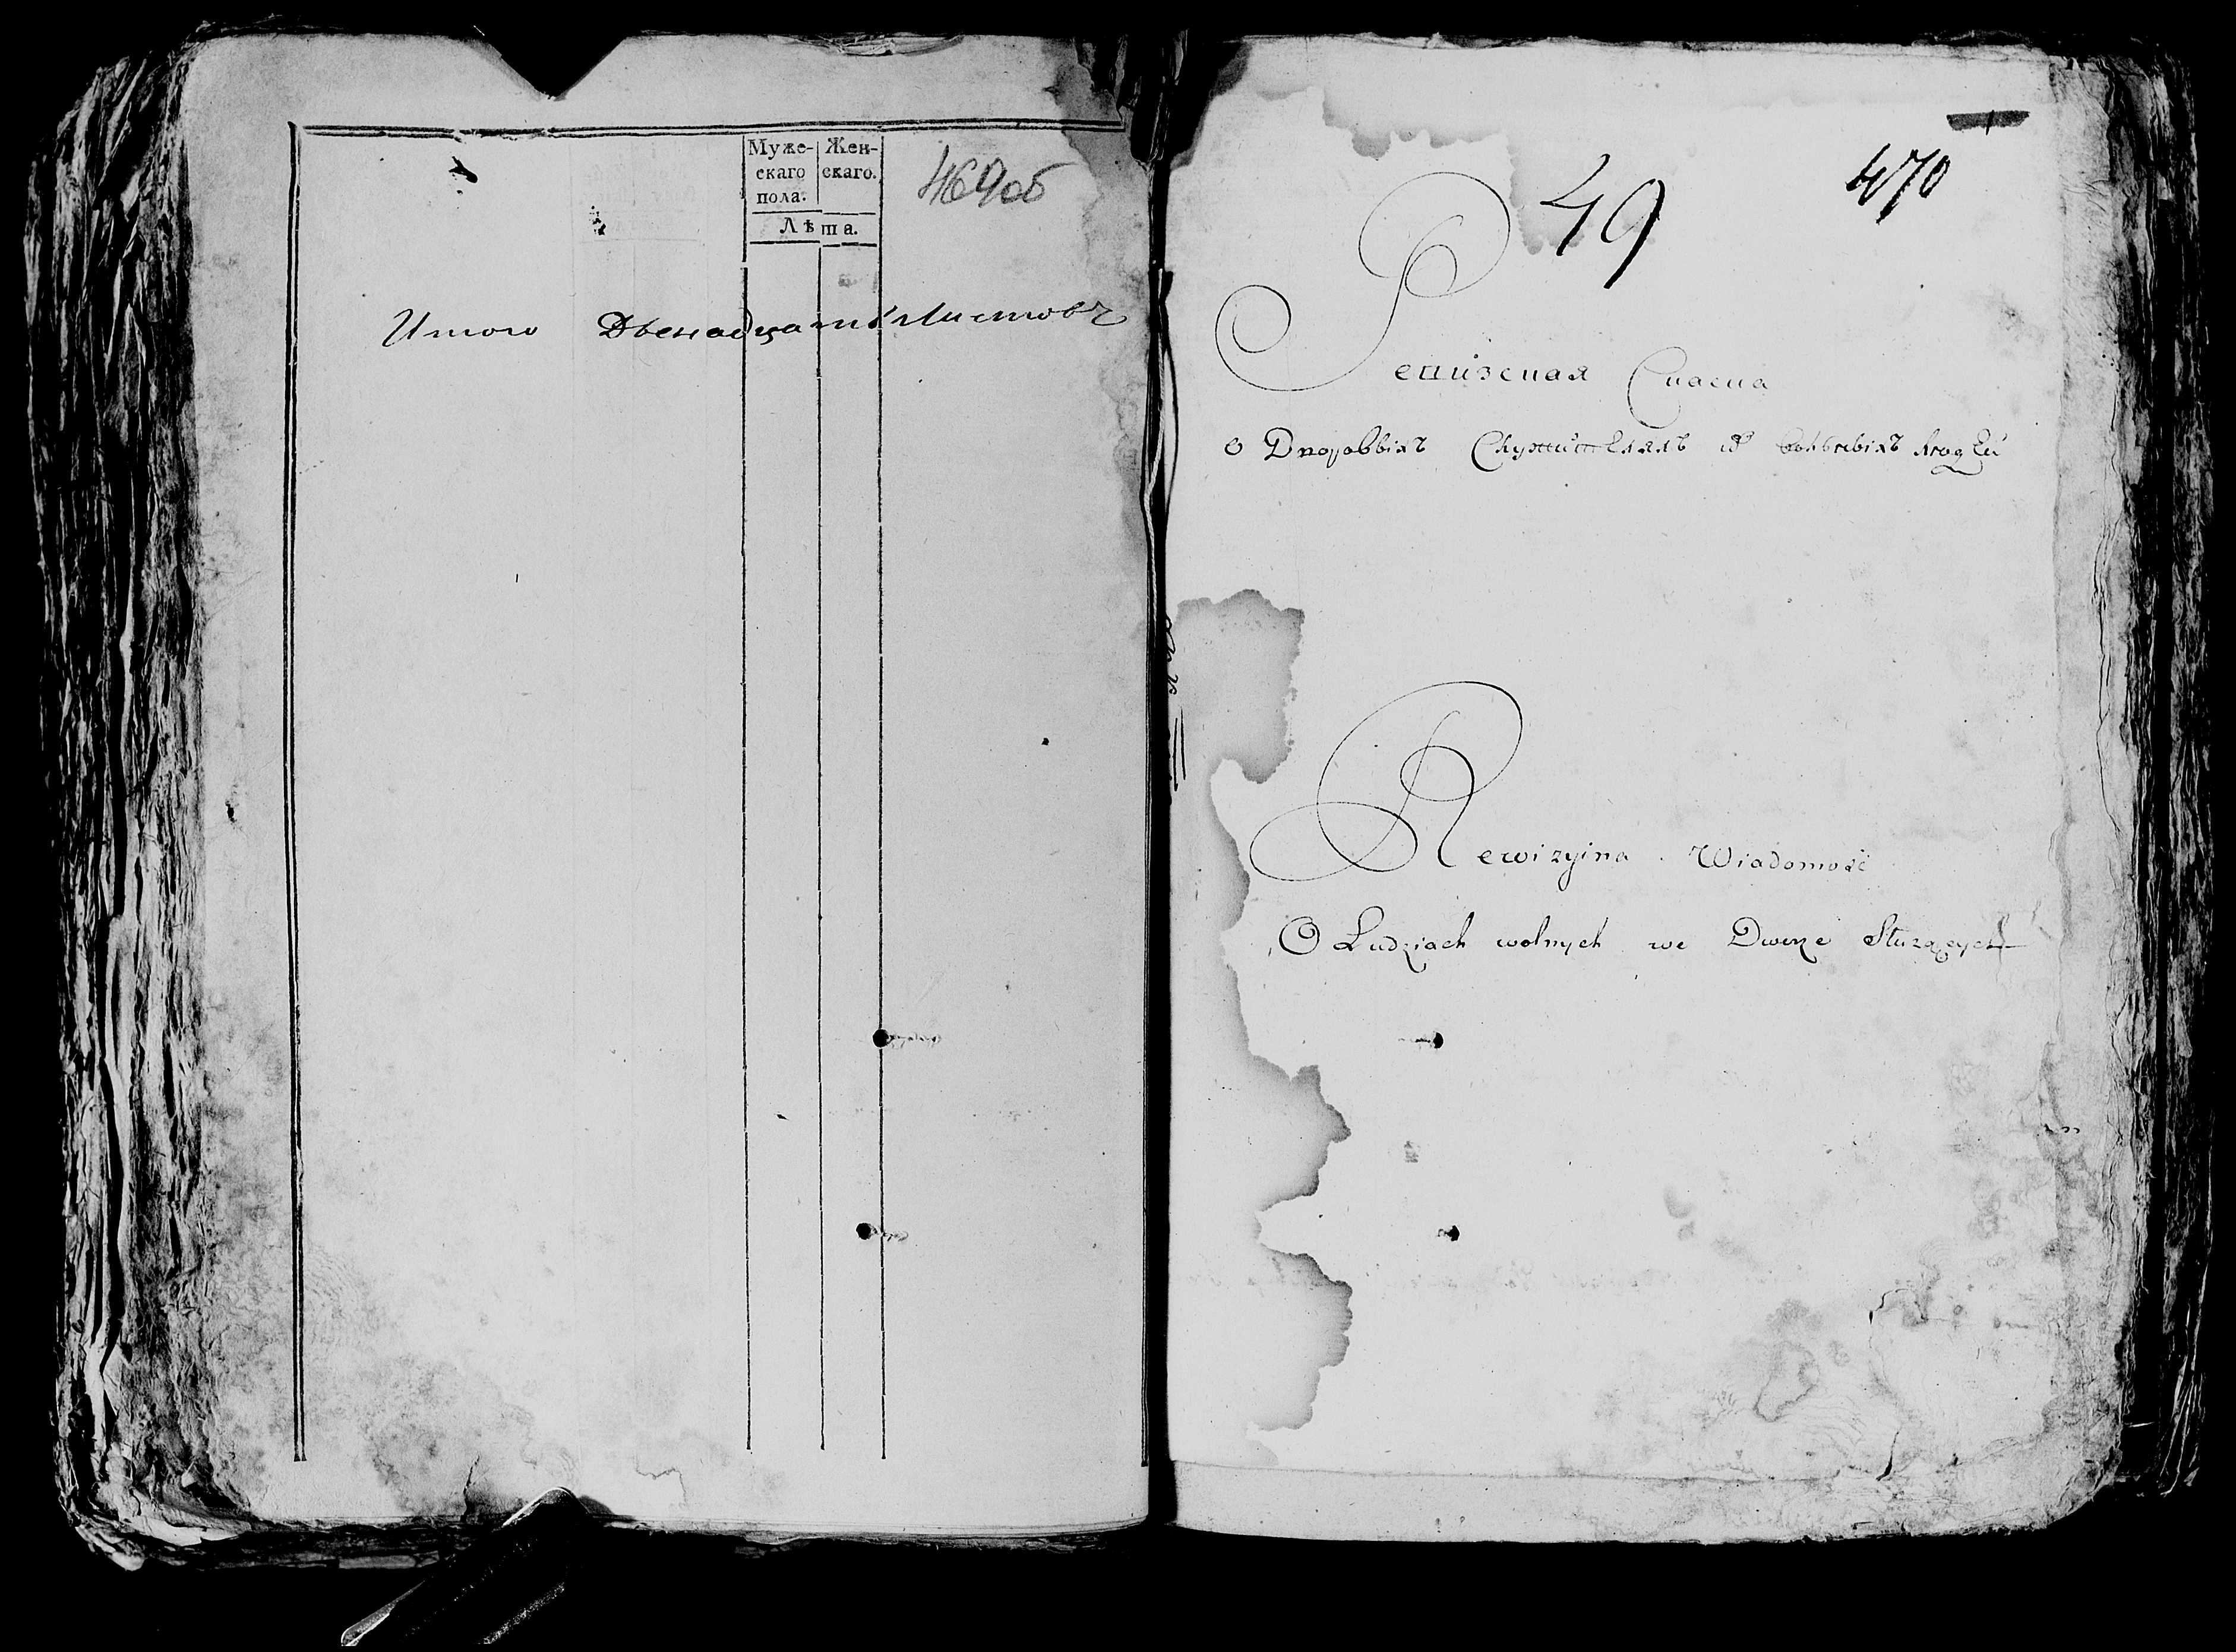 Муже- Жен-
скаго скаго.
пола.
Лѣта.
469об
Итого Двенадцать Листовъ
470
49
Ревизская Сказка
О Дворовыхъ Служителяхъ и вольныхъ людей
Rewizyina Wiadomość
O Ludziach wolnych we Dworze Służących